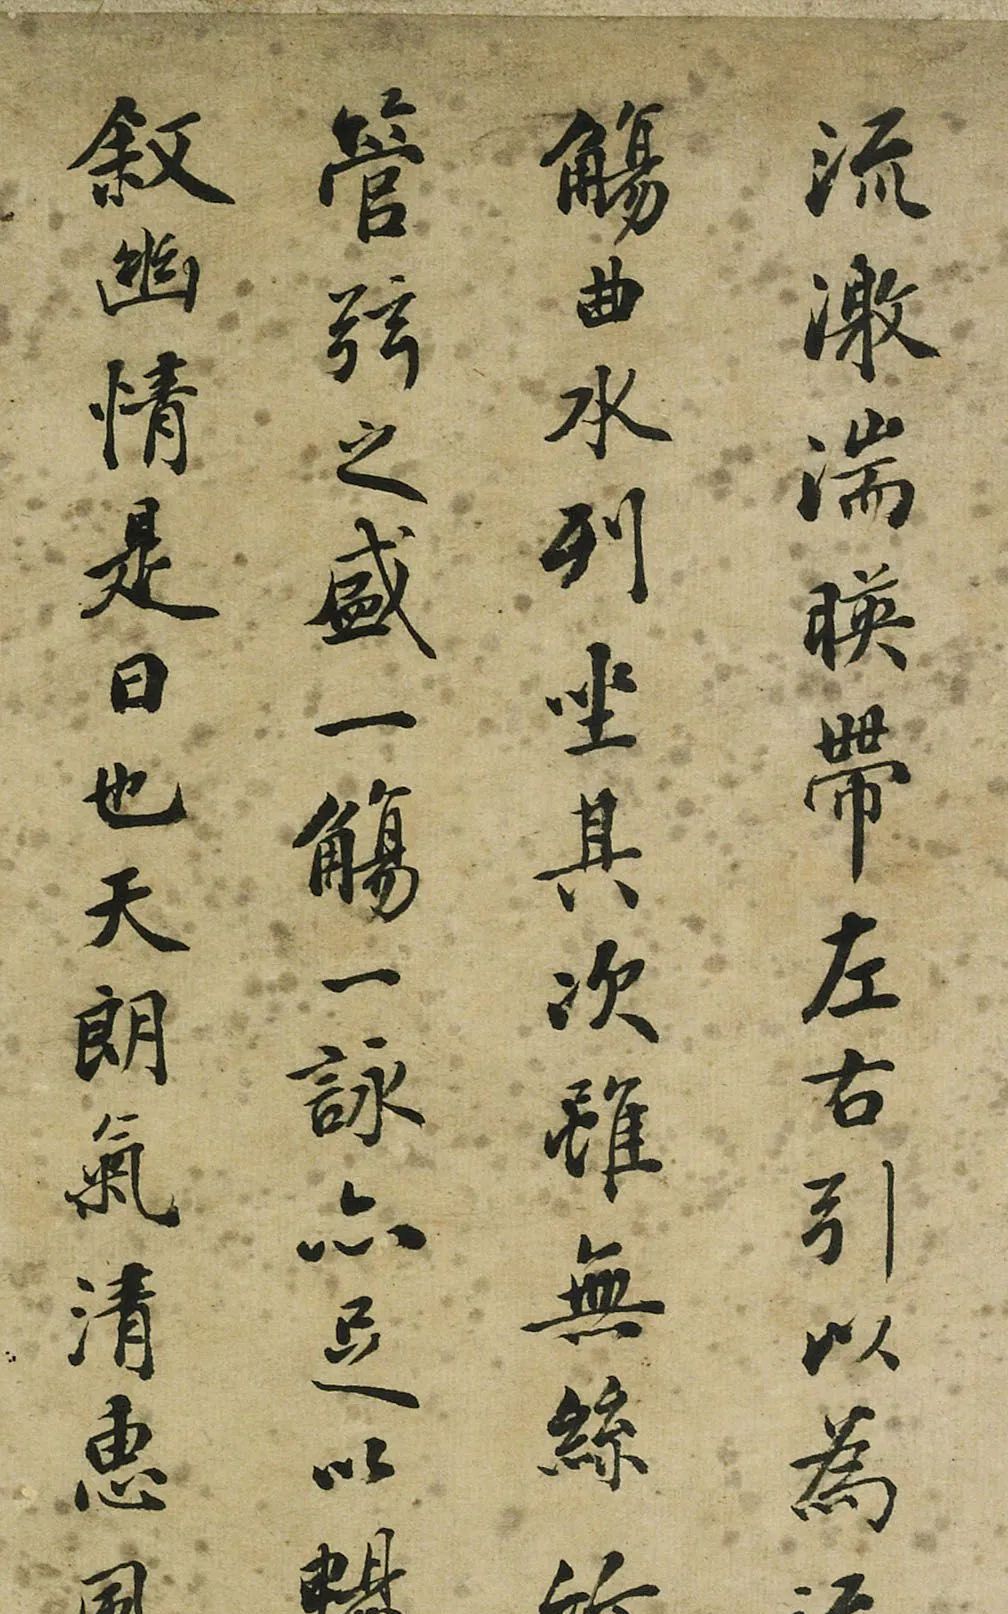 流激湍暎帶左右引以為流
觴曲水列坐其次雖無絲竹
管弦之盛一觴一詠亦足以暢
叙幽情是日也天朗氣清惠風